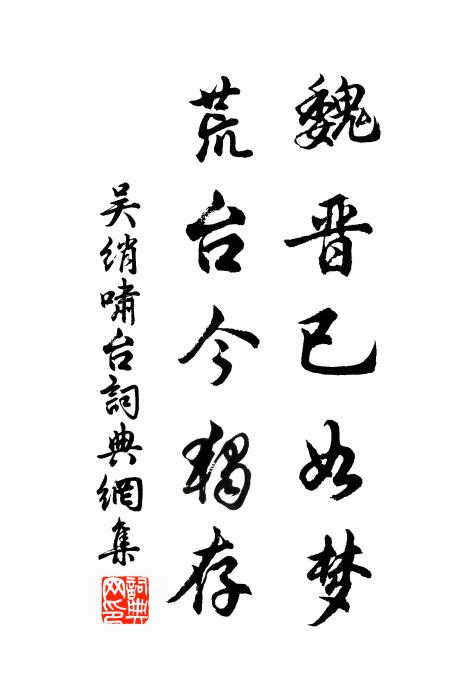 魏晋已如梦
荒台今独存
吴绡啸台詞典網集
詞典网印